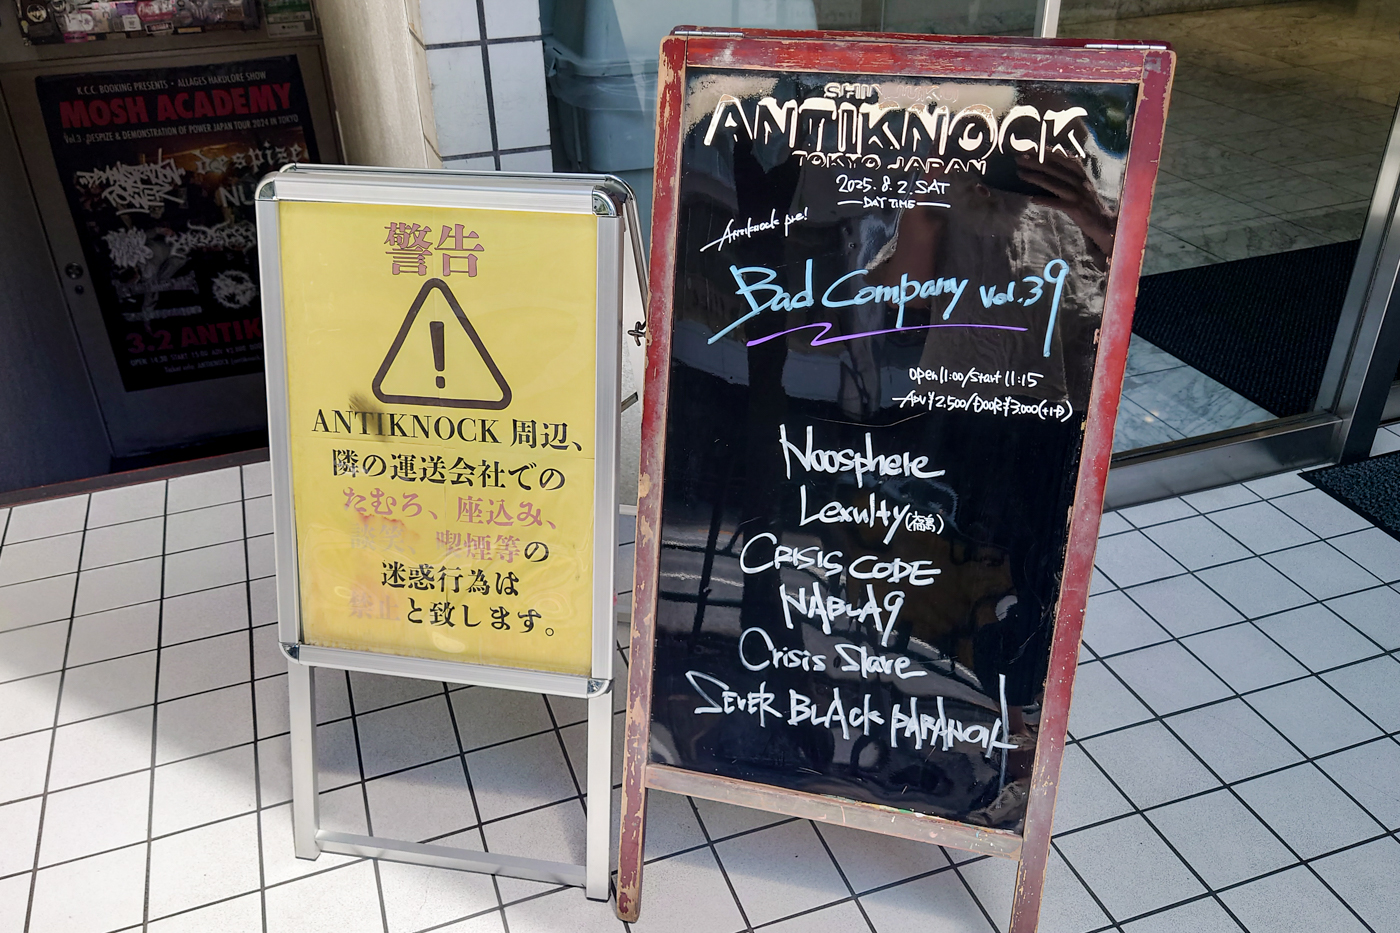 K.C.C. BOOKING PRESENTS • ALLAGES HARDCORE SHOW
MOSH ACADEMY
Vol.3 -DESPIZE & DEMONSTRATION OF POWER JAPAN TOUR 2024 IN TOKYO
DEMONSTRATION OF POWER
despize
3.2 ANTIK
警告
ANTIKNOCK 周辺、
隣の運送会社での
たむろ、座込み、
談笑、喫煙等の
迷惑行為は
禁止と致します。
ANTIKNOCK
TOKYO JAPAN
2025.8.2.SAT
DAY TIME
Antiknock pre!
Bad Company vol.39
open11:00/start11:15
ADV¥2,500/DOOR¥3,000(+1D)
Noosphere
Lexulty(福島)
CRISIS CODE
NABLA9
Crisis Slave
SEVER BLACK PARANOIA